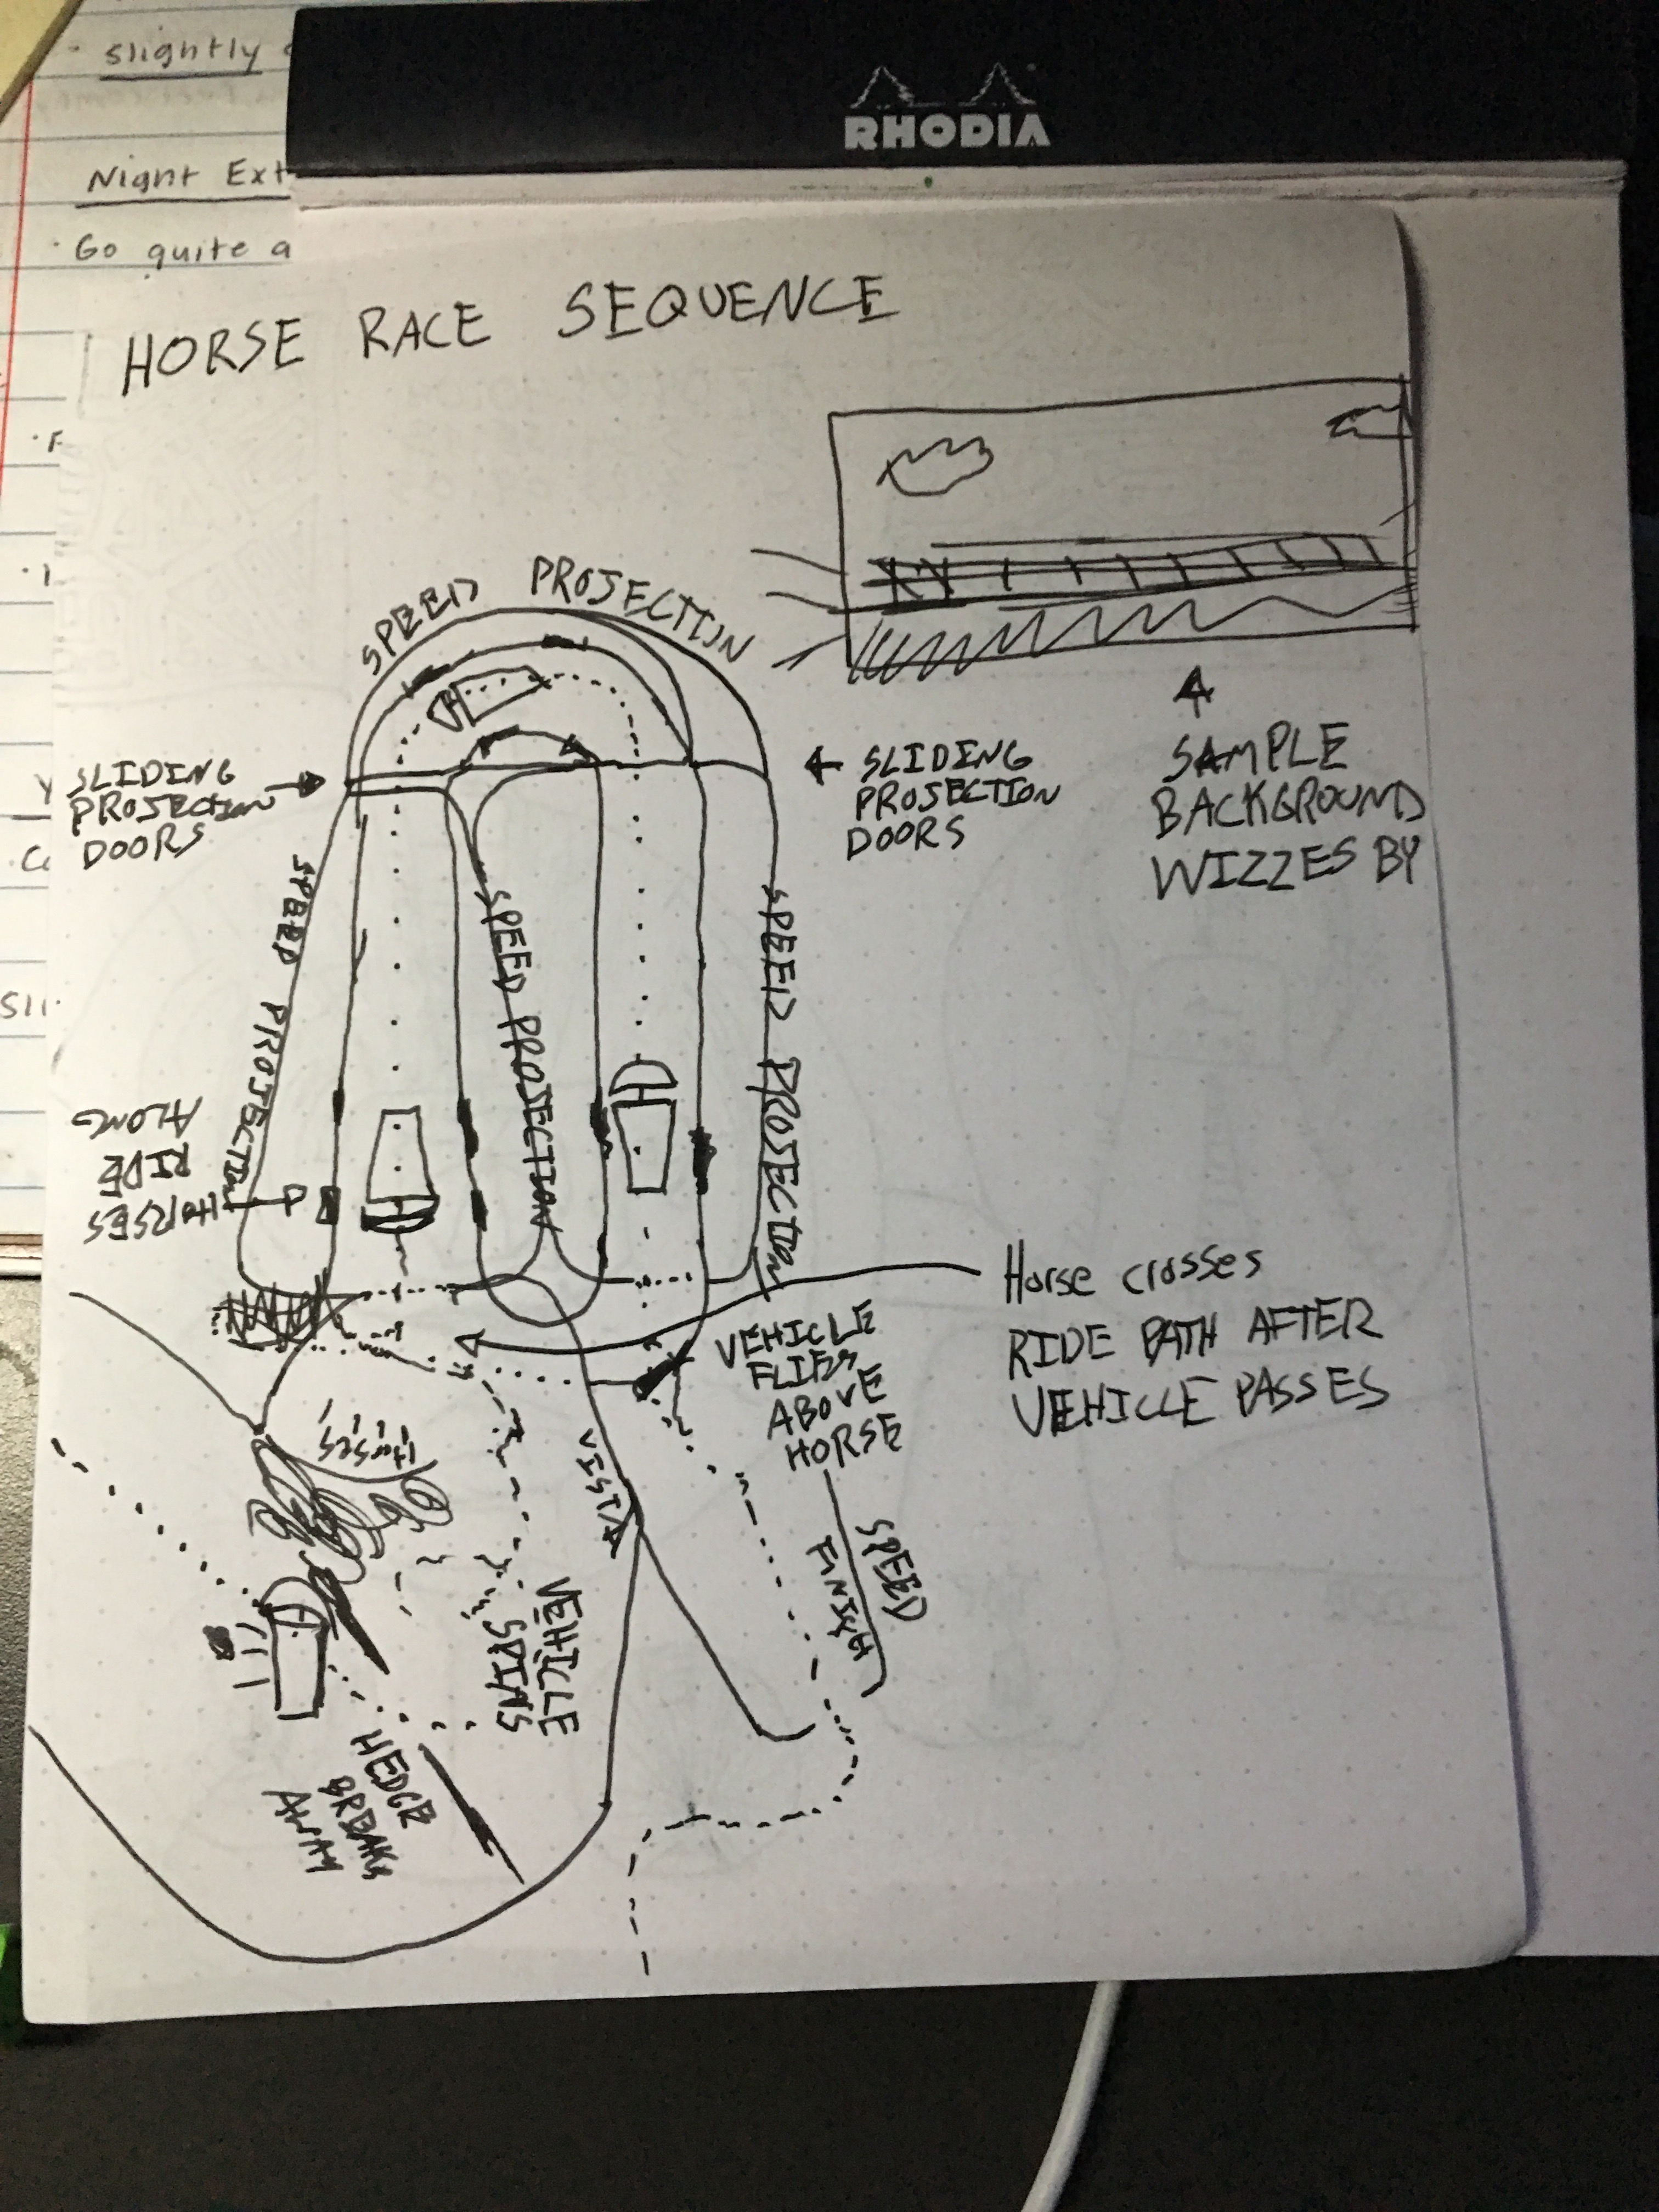 slightly
RHODIA
Night Ext
Go quite a
HORSE RACE SEQUENCE
SPEED PROJECTION
SLIDING
PROJECTION
DOORS
SLIDING
PROJECTION
DOORS
SAMPLE
BACKGROUND
WIZZES BY
SPEED PROJECTION
SPEED PROJECTION
SPEED PROJECTION
HORSES
RIDE
ALONG
Horse crosses
RIDE PATH AFTER
VEHICLE PASSES
VEHICLE
FLIES
ABOVE
HORSE
HORSES
VISTA
SPEED
FINISH
VEHICLE
SPINS
HEDGE
BREAKS
AWAY